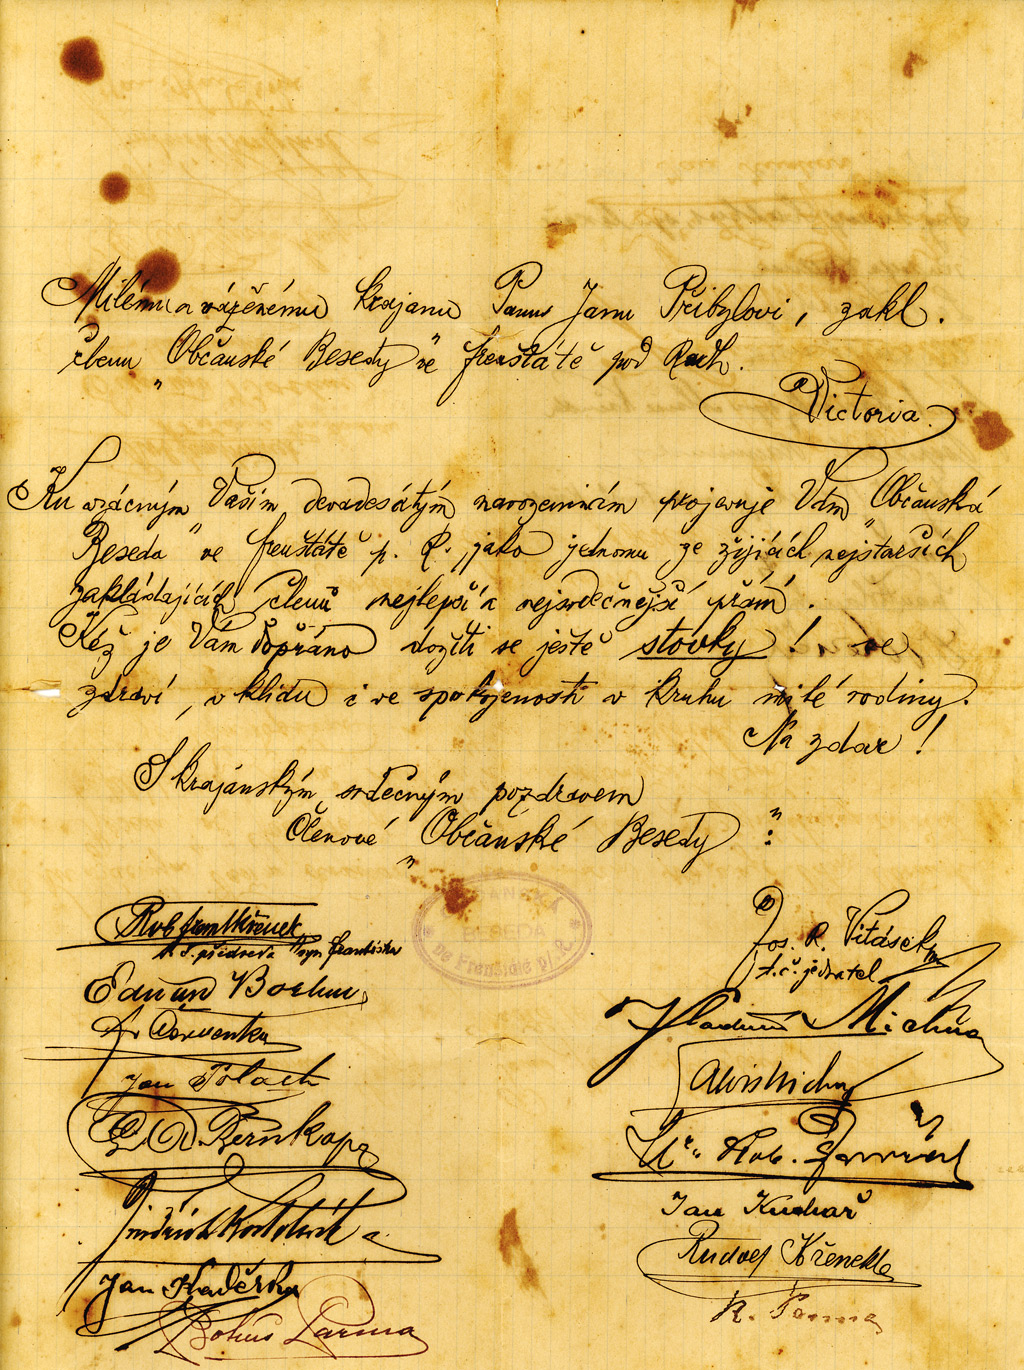 Milému a váženému krajanu Panu Janu Přibylovi, zakl.
členu „Občanské Besedy" ve Frenštátě pod Radh.
Victoria.
Ku vzácným Vašim devadesátým narozeninám projevuje Vám „Občanská
Beseda" ve Frenštátě p. R. jako jednomu ze žijících nejstarších
zakládajících členů nejlepší a nejsrdečnější přání.
Kéž je Vám dopřáno dožíti se ještě stovky! ve
zdraví, v klidu i ve spokojenosti v kruhu milé rodiny.
Na zdar!
S krajanským srdečným pozdravem
Členové „Občanské Besedy":
OBČANSKÁ
BESEDA
ve Frenštátě p/R.
t. č. předseda syn Františka
Edmund
Červenka
Jan Polach
Bernkopf
Jindřich
Jan Hladěrka
Bohuš Parma
Jos. R. Vitásek
t. č. jednatel
Vladimír Michna
Alois Michna
Rob.
Jan Kuchař
Rudolf Křenek
R. Parma